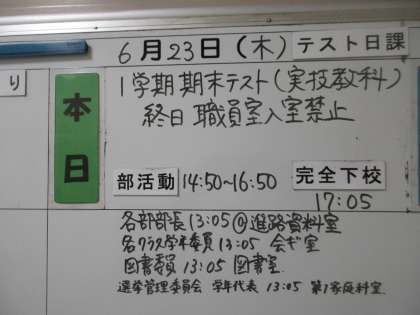 6月23日(木) テスト日課
り
本日
1学期期末テスト(実技教科)
終日 職員室入室禁止
部活動 14:50~16:50 完全下校
17:05
各部部長 13:05@進路資料室
各クラス学年委員 13:05 会ぎ室
図書委員 13:05 図書室
選挙管理委員会 学年代表 13:05 第1家庭科室